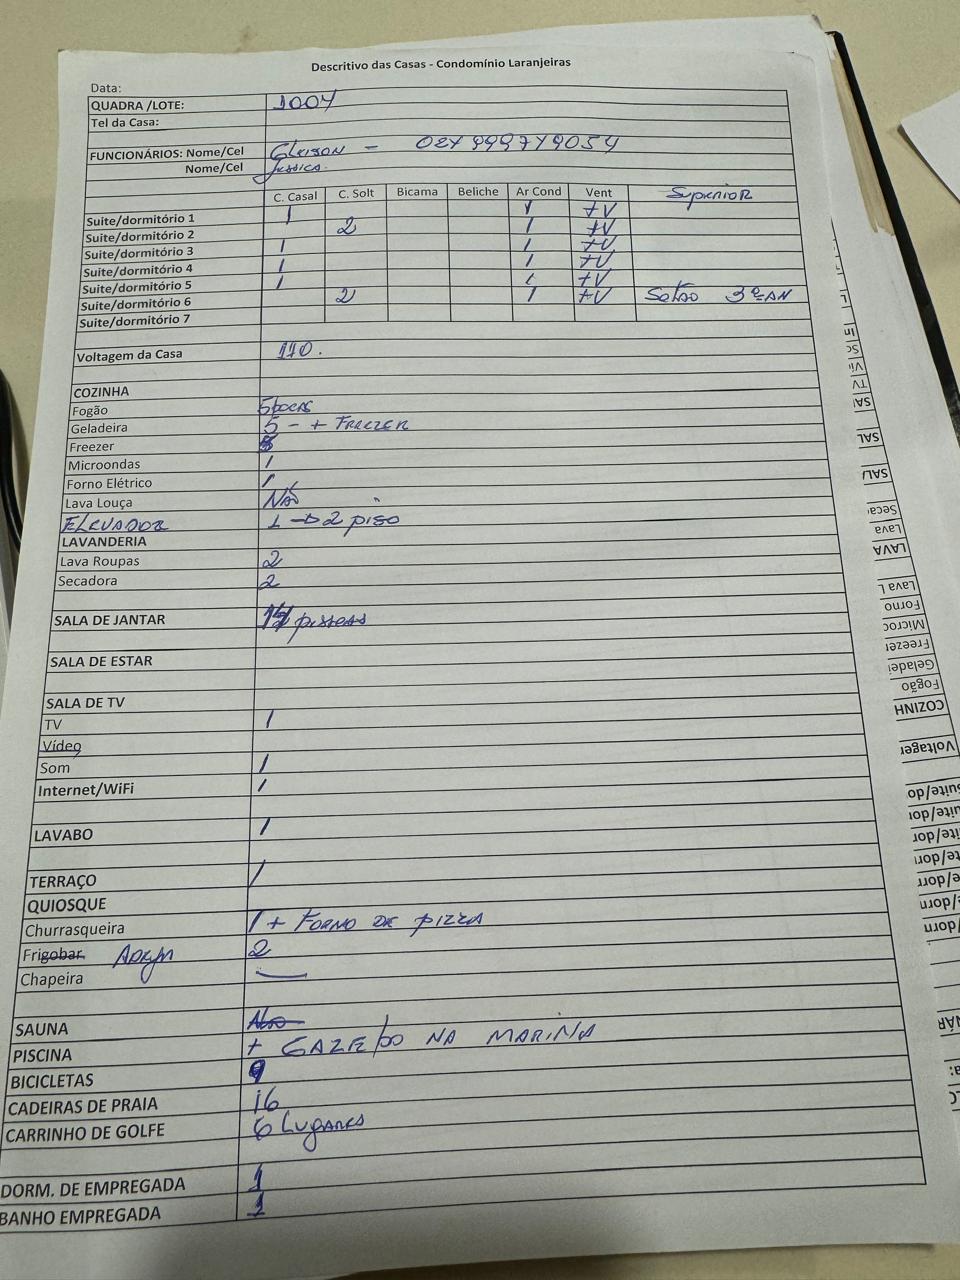 Descritivo das Casas - Condomínio Laranjeiras
Data:
QUADRA /LOTE: 1004
Tel da Casa:
FUNCIONÁRIOS: Nome/Cel Gleison - 024 999749054
Nome/Cel Jessica.
C. Casal C. Solt Bicama Beliche Ar Cond Vent Superior
Suite/dormitório 1 1 1 TV
Suite/dormitório 2 2 1 TV
Suite/dormitório 3 1 1 TV
Suite/dormitório 4 1 1 TV
Suite/dormitório 5 1 1 TV
Suite/dormitório 6 2 1 TV Sotão 3º AN
Suite/dormitório 7
Voltagem da Casa 110.
COZINHA
Fogão 5 bocas
Geladeira 5 - + FREEZER
Freezer
Microondas 1
Forno Elétrico 1
Lava Louça Não
ELEVADOR 1 → 2 piso
LAVANDERIA
Lava Roupas 2
Secadora 2
SALA DE JANTAR pissoas
SALA DE ESTAR
SALA DE TV
TV 1
Vídeo
Som 1
Internet/WiFi 1
LAVABO 1
TERRAÇO 1
QUIOSQUE
Churrasqueira 1 + FORNO DE PIZZA
Frigobar 2
Chapeira
SAUNA Não
PISCINA + GAZEBO NA MARINA
BICICLETAS 9
CADEIRAS DE PRAIA 16
CARRINHO DE GOLFE 6 Lugares
DORM. DE EMPREGADA 1
BANHO EMPREGADA 1